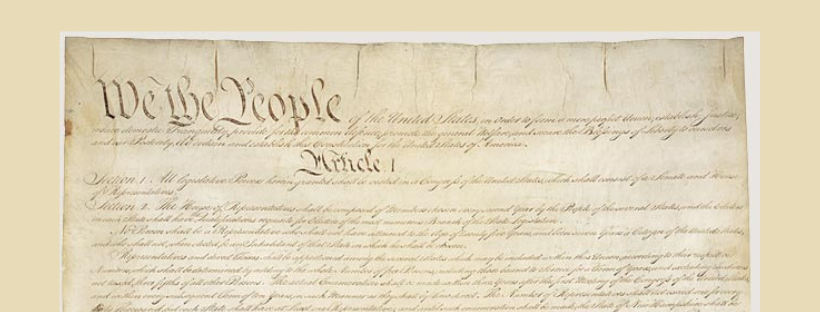 We the People of the United States, in Order to form a more perfect Union, establish Justice,
insure domestic Tranquility, provide for the common defence, promote the general Welfare, and secure the Blessings of Liberty to ourselves
and our Posterity, do ordain and establish this Constitution for the United States of America.
Article. I.
Section. 1. All legislative Powers herein granted shall be vested in a Congress of the United States, which shall consist of a Senate and House
of Representatives.
Section. 2. The House of Representatives shall be composed of Members chosen every second Year by the People of the several States, and the Electors
in each State shall have Qualifications requisite for Electors of the most numerous Branch of the State Legislature.
No Person shall be a Representative who shall not have attained to the Age of twenty five Years, and been seven Years a Citizen of the United States,
and who shall not, when elected, be an Inhabitant of that State in which he shall be chosen.
Representatives and direct Taxes shall be apportioned among the several States which may be included within this Union, according to their respective
Numbers, which shall be determined by adding to the whole Number of free Persons, including those bound to Service for a Term of Years, and excluding Indians
not taxed, three fifths of all other Persons. The actual Enumeration shall be made within three Years after the first Meeting of the Congress of the United States,
and within every subsequent Term of ten Years, in such Manner as they shall by Law direct. The Number of Representatives shall not exceed one for every
thirty Thousand, but each State shall have at Least one Representative; and until such enumeration shall be made, the State of New Hampshire shall be